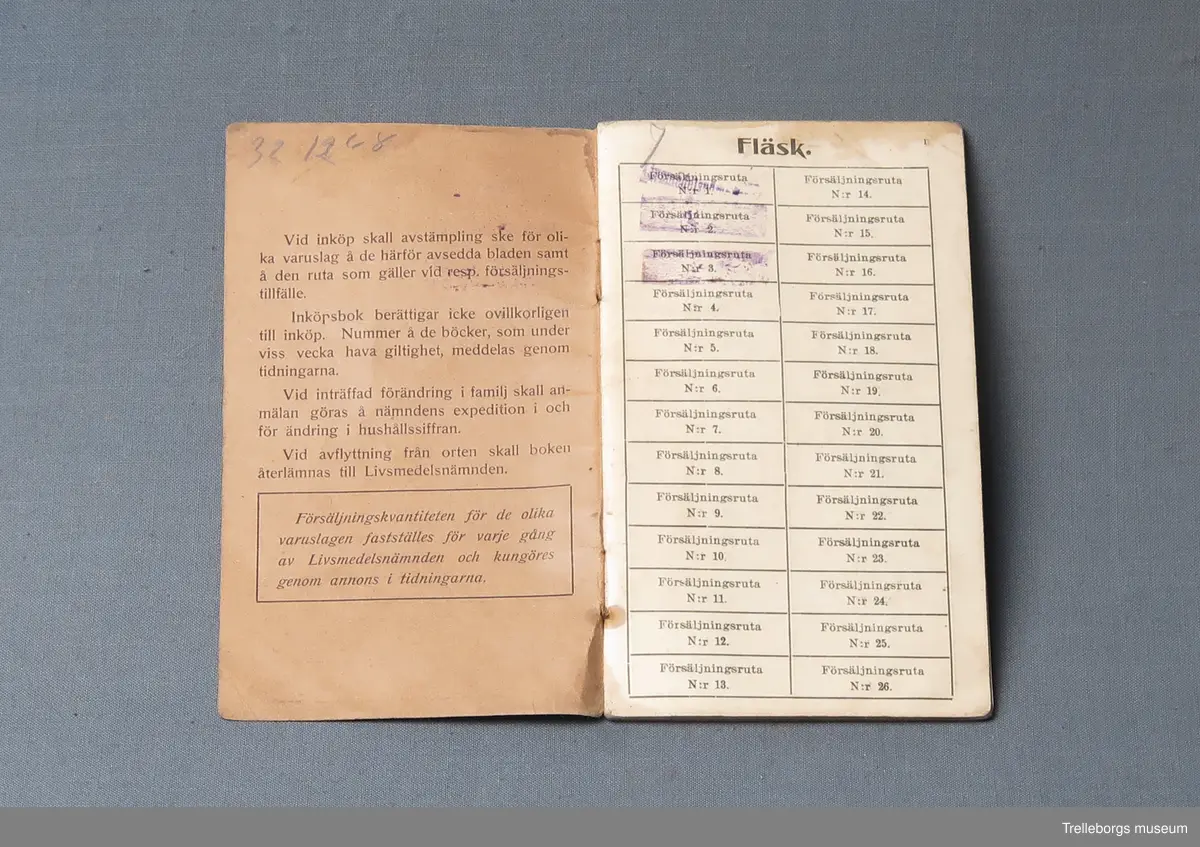 32 12
Vid inköp skall avstämpling ske för oli-
ka varuslag å de härför avsedda bladen samt
å den ruta som gäller vid resp. försäljnings-
tillfälle.
Inköpsbok berättigar icke ovillkorligen
till inköp. Nummer å de böcker, som under
viss vecka hava giltighet, meddelas genom
tidningarna.
Vid inträffad förändring i familj skall an-
mälan göras å nämndens expedition i och
för ändring i hushållssiffran.
Vid avflyttning från orten skall boken
återlämnas till Livsmedelsnämnden.
Försäljningskvantiteten för de olika
varuslagen fastställes för varje gång
av Livsmedelsnämnden och kungöres
genom annons i tidningarna.
Fläsk.
Försäljningsruta
N:r 1.
Försäljningsruta
N:r 2.
Försäljningsruta
N:r 3.
Försäljningsruta
N:r 4.
Försäljningsruta
N:r 5.
Försäljningsruta
N:r 6.
Försäljningsruta
N:r 7.
Försäljningsruta
N:r 8.
Försäljningsruta
N:r 9.
Försäljningsruta
N:r 10.
Försäljningsruta
N:r 11.
Försäljningsruta
N:r 12.
Försäljningsruta
N:r 13.
Försäljningsruta
N:r 14.
Försäljningsruta
N:r 15.
Försäljningsruta
N:r 16.
Försäljningsruta
N:r 17.
Försäljningsruta
N:r 18.
Försäljningsruta
N:r 19.
Försäljningsruta
N:r 20.
Försäljningsruta
N:r 21.
Försäljningsruta
N:r 22.
Försäljningsruta
N:r 23.
Försäljningsruta
N:r 24.
Försäljningsruta
N:r 25.
Försäljningsruta
N:r 26.
Trelleborgs museum